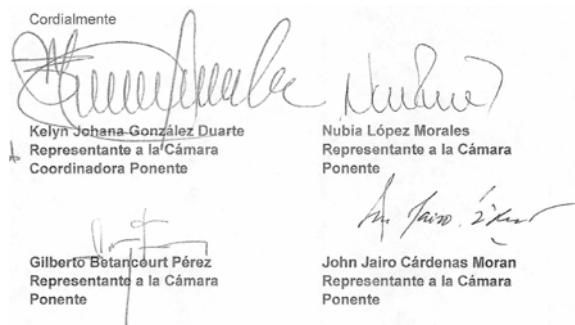 Cordialmente
Kelyn Johana González Duarte
Representante a la Cámara
Coordinadora Ponente
Nubia López Morales
Representante a la Cámara
Ponente
Gilberto Betancourt Pérez
Representante a la Cámara
Ponente
John Jairo Cárdenas Moran
Representante a la Cámara
Ponente